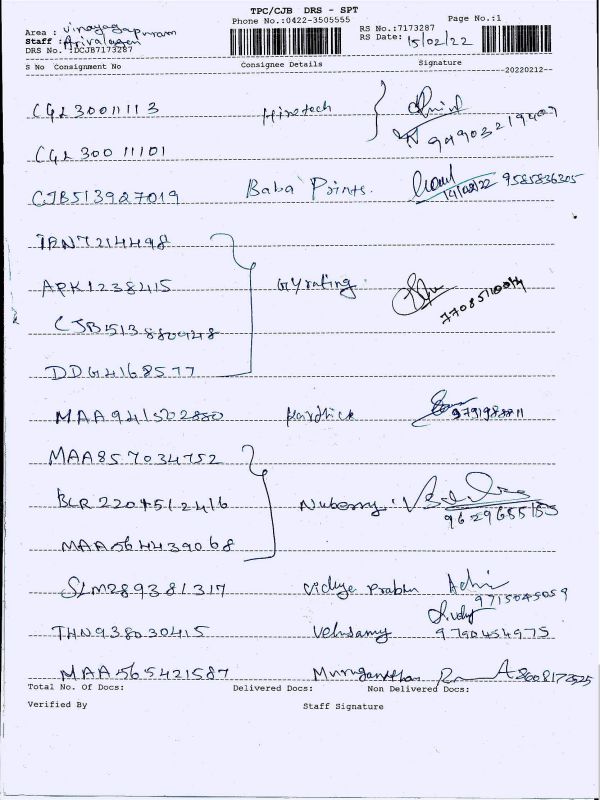 TPC/CJB DRS - SPT
Phone No.:0422-3505555
Page No.:1
Area : Vinayagapuram
Staff : Arivalagan
DRS No. :DCJB7173287
RS No.:7173287
RS Date: 15/02/22
S No Consignment No Consignee Details Signature
20220212
CGL30011113 Hinetech
9490321940
CGL30011101
CJB513927019 Baba Prints. 14/02/22 9585836205
7214498
APK1238415 Gyrating 7708511004
CJB513880928
DDG4168577
MAA941502880 Karthick
MAA857034752
BLR2204512416 Nuberry 9629655155
MAA564439068
SLM289381317 Vidhya Prabhu 9715045059
THN938030415 Velusamy 9790454975
MAA565421587 Muruganthan 8608173525
Total No. Of Docs: Delivered Docs: Non Delivered Docs:
Verified By Staff Signature